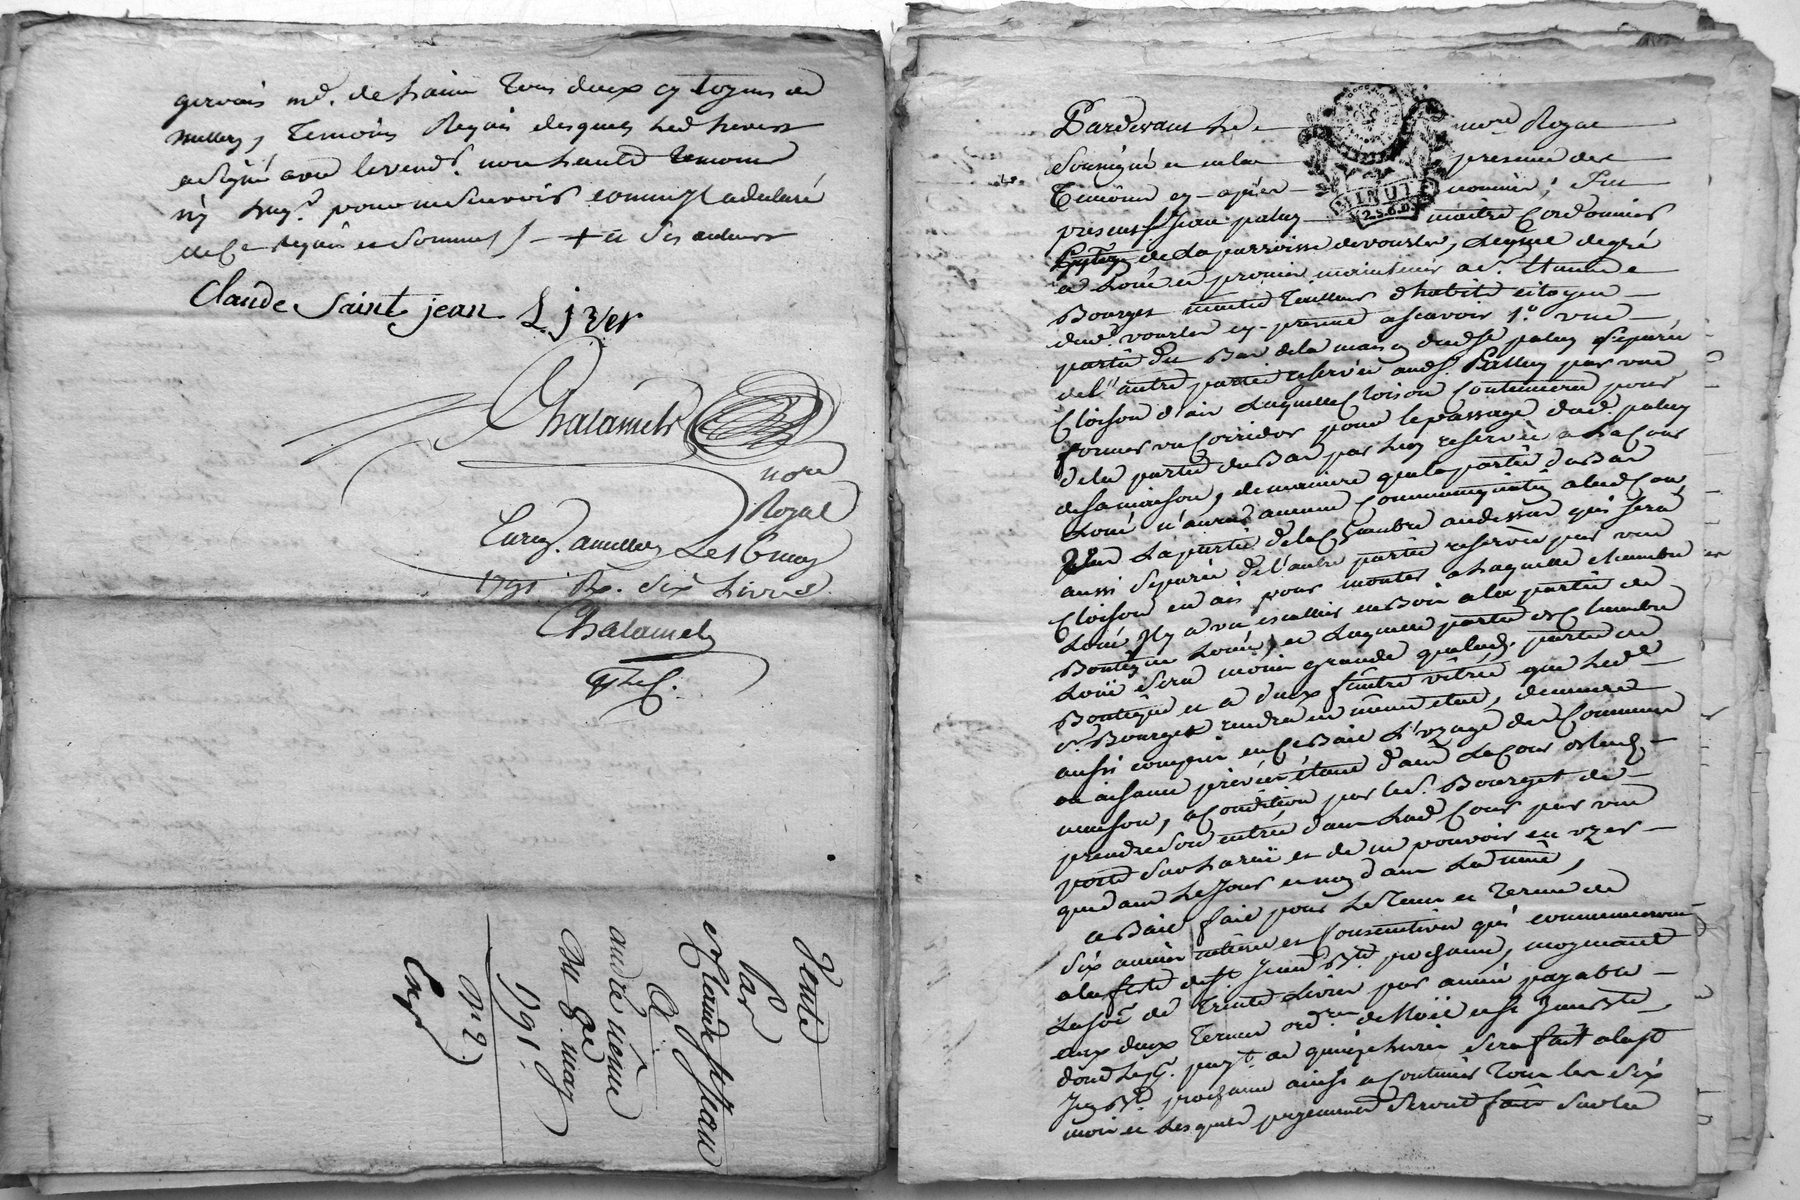 gervais md. de Tous deux cytoyens de
Millery, Temoins Requis lesquels
a signé avec le vend. non led. Temoins
ny acq. pour ne scavoir comme Il a declaré
de ce Requis et Sommés /- + et ses auteurs
Claude Saint jean L j Ver
Chalamel
nore
Royal
Enrg. a millery Le 16 may
1791 Rx. Six Livres
Chalamel
Vente
par
Claude St Jean
à
andré
Du 8e may
1791.
Exp
Pardevant Le nore Royal
Soussigné et en la presence des
Temoins cy-après nommés; Fut
present Sr Jean paluy maitre Cordonnier
de La parroisse de vourles, Lequel de gré
a Loué et promis maintenir a Sr.
Bourget maitre Tailleur d'habits citoyen
dud. vourles cy-present ascavoir 1o. une
partie du Bas de la maison dud. Sr paluy separée
de l'autre partie reservée aud. Sr. Palluy par une
Cloison d'ais Laquelle Cloison Continuera pour
former un Corridor pour le passage dud. paluy
de la partie du Bas par luy reservée a La Cour
de sa maison, de maniere que la partie du Bas
Loué n'aura aucune Communication a lad. Cour,
2o. La partie de la Chambre au dessus qui Sera
aussi Separée de l'autre partie reservée par une
Cloison en ais pour monter a Laquelle chambre
Loué Il y a un escallier en Bois a la partie de
Boutique Loué, et Laquelle partie de Chambre
Loué sera moins grande que lad. partie de
Boutique et a deux fenêtre vitrée que led.
Sr. Bourget rendra en même etat, demeure
aussi compris en ce Bail L'uzage des Commune
ou aisance privées étant dans La Cour de lad.
maison, a Condition par led. Sr. Bourget de
prendre son entrée dans Lad. Cour par une
porte Sur La rüe et de ne pouvoir en uzer
que dans Le Jour et non dans La nuit,
a Bail fait pour Le Tems et Terme de
Six années entieres et Consecutives qui commenceront
a la fete de St Jean Bte prochaine, moyenant
La som̃e de Trente Livres par année payable
en deux Termes ordres. de Noël et St Jean Bte
dont Le Pr. payt. de quinze livres Sera fait a la St
Jean Bte. prochaine ainsi a Continuer Tous les Six
mois et Lesquels payemens Seront faits Sur Les
MINUTE
2.S.6.D.